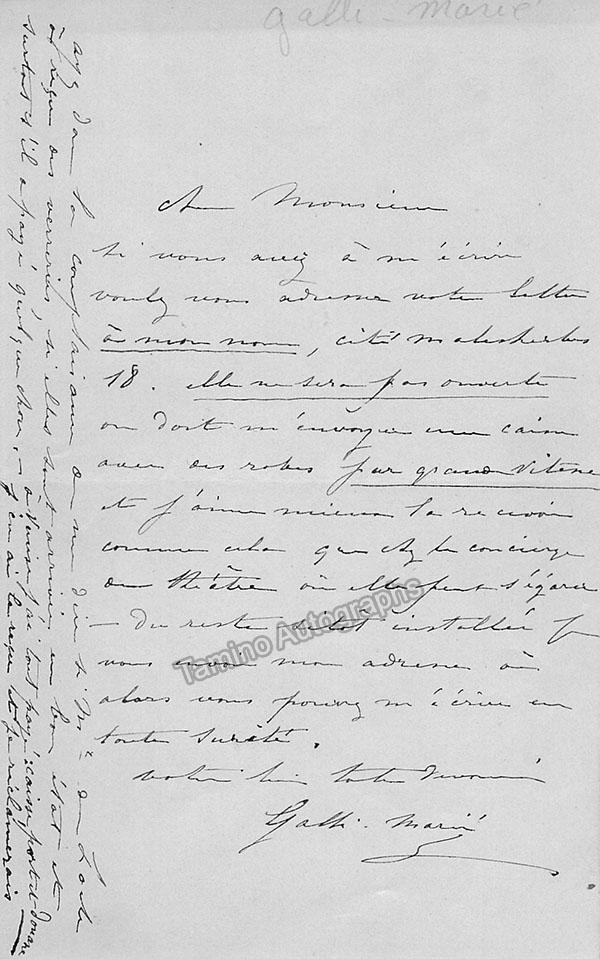 Galli-Marié
Cher Monsieur
si vous avez à m'écrire
voulez vous adresser votre lettre
à mon nom, cité Malesherbes
18. elle ne sera pas ouverte
on doit m'envoyer une caisse
avec des robes par grande vitesse
et j'aime mieux la recevoir
comme cela que chez le concierge
du théâtre où elle peut s'égarer
— Du reste sitôt installée je
vous envoie mon adresse où
alors vous pouvez m'écrire en
toute sureté.
votre bien toute dévouée
Galli-Marié
ayez donc la complaisance de me dire si Mr de
a reçu des verreries, si elles sont arrivées en bon état et
surtout s'il a payé quelque chose, — à Venise j'ai tout payé: caisse, port et douane
j'en ai le reçu et je réclamerais
Tamino Autographs